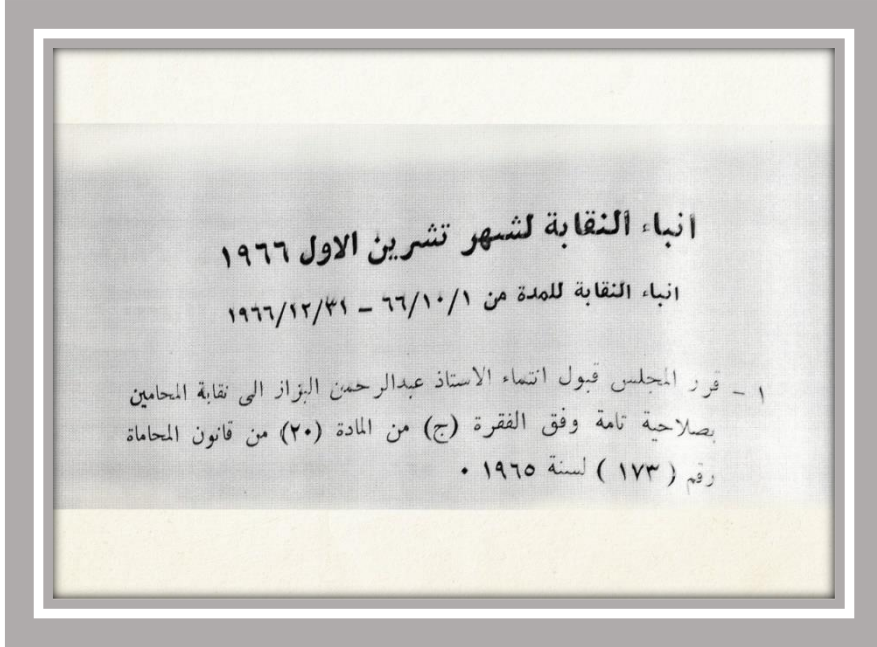 انباء النقابة لشهر تشرين الاول ١٩٦٦
انباء النقابة للمدة من ٦٦/١٠/١ – ١٩٦٦/١٢/٣١
١ – قرر المجلس قبول انتماء الاستاذ عبدالرحمن البزاز الى نقابة المحامين
بصلاحية تامة وفق الفقرة (ج) من المادة (٢٠) من قانون المحاماة
رقم ( ١٧٣ ) لسنة ١٩٦٥ ٠